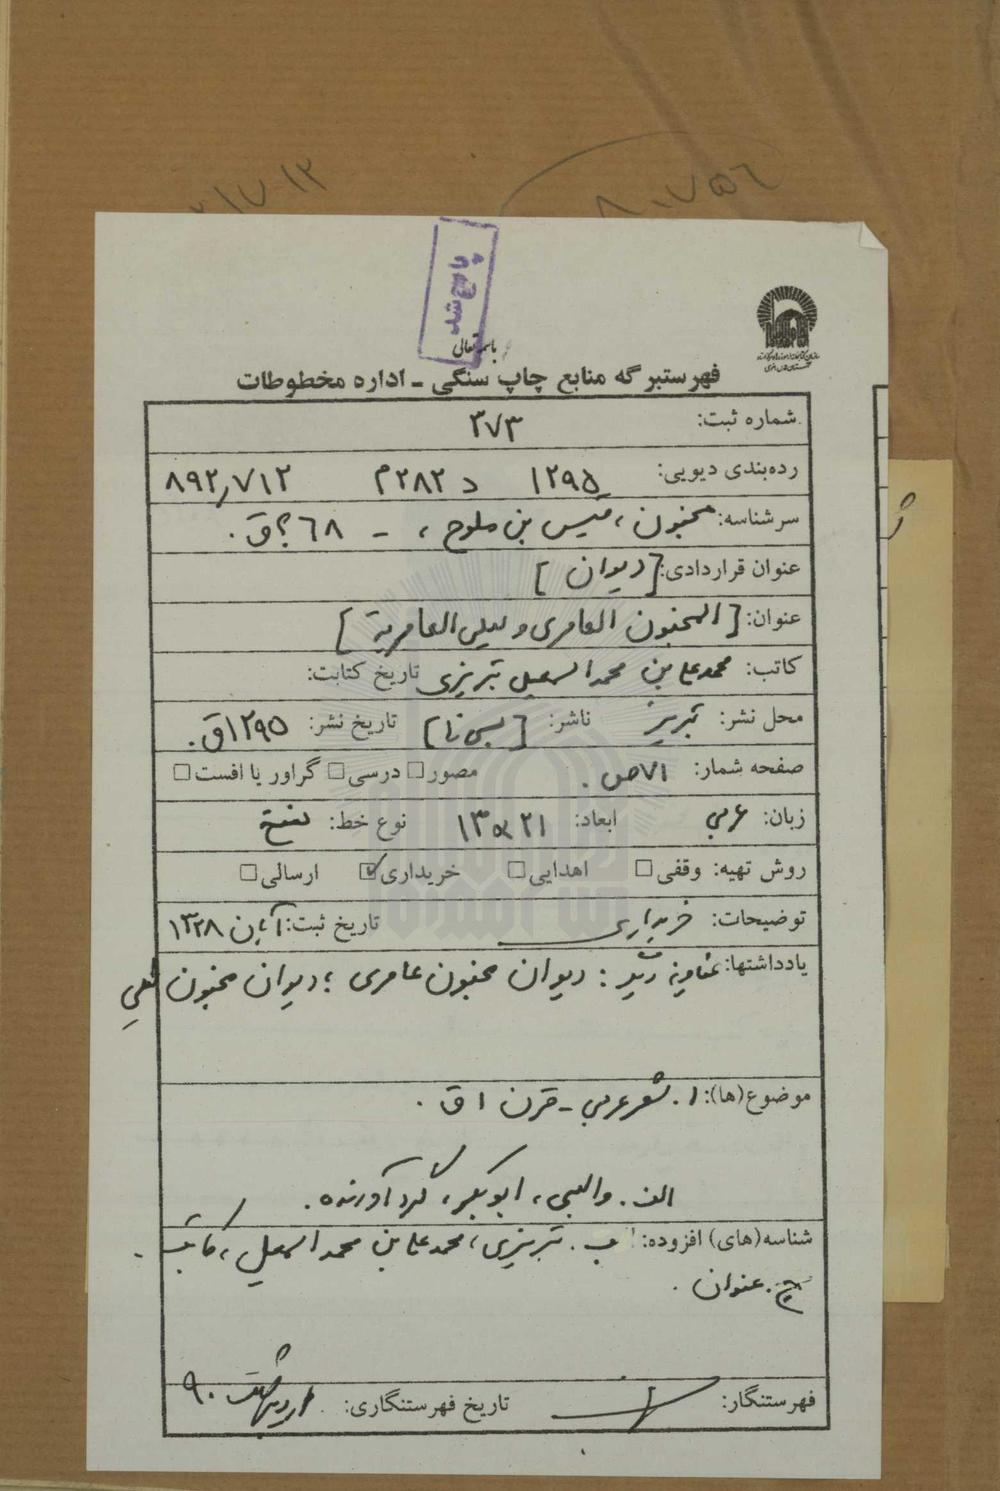 ۸۰۷۵۶
۲۱۷۱۳
باسمه تعالی
فهرستبرگه منابع چاپ سنگی ـ اداره مخطوطات
شماره ثبت: ۳۷۳
رده‌بندی دیویی: ۱۲۹۵ د ۲۸۲م ۸۹۲٫۷۱۲
سرشناسه: مجنون، قیس بن ملوح، - ۶۸؟ق.
عنوان قراردادی: [دیوان]
عنوان: [المجنون العامری و لیلی العامریة]
کاتب: محمدعلی بن محمد اسمعیل تبریزی تاریخ کتابت:
محل نشر: تبریز ناشر: [بی نا] تاریخ نشر: ۱۲۹۵ق.
صفحه شمار: ۷۱ص. مصور □ درسی □ گراور یا افست □
زبان: عربی ابعاد: ۲۱×۱۳ نوع خط: نسخ
روش تهیه: وقفی □ اهدایی □ خریداری ☑ ارسالی □
توضیحات: خریداری تاریخ ثبت: آبان ۱۳۲۸
یادداشتها: عناوین دیگر: دیوان مجنون عامری؛ دیوان مجنون لیلی
موضوع(ها): ۱. شعر عربی - قرن ۱ق.
الف. والبی، ابوبکر، گردآورنده.
شناسه(های) افزوده: ب. تبریزی، محمدعلی بن محمد اسمعیل، کاتب.
ج. عنوان.
فهرستنگار: تاریخ فهرستنگاری: اردیبهشت ۹۰